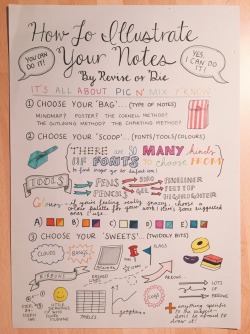 How To Illustrate
Your Notes
YOU CAN DO IT!
YES, I CAN DO IT!
By Revise or Die
IT'S ALL ABOUT PIC N' MIX Y'KNOW
① CHOOSE YOUR 'BAG'... (TYPE OF NOTES)
MINDMAP? POSTER? THE CORNELL METHOD?
THE OUTLINING METHOD? THE CHARTING METHOD?
② CHOOSE YOUR 'SCOOP'... (FONTS/TOOLS/COLOURS)
THERE ARE SO MANY kinds
OF FONTS to choose FROM!
TOOLS
PENS
BIRO
FINELINER
PENCILS
GEL
FELT TIP
HIGHLIGHTER
Colours
if you're feeling really spacey, choose a
colour palette for your work! Here's some suggested
ones I use.
A
B
C
D
E
③ CHOOSE YOUR 'SWEETS'... (TWIDDLY BITS)
CLOUDS
BANNERS
RIBBONS
FLAGS
TABLES
graphs
LOTS OF ARROWS
anything specific
to the subject-
don't be afraid to
draw it!